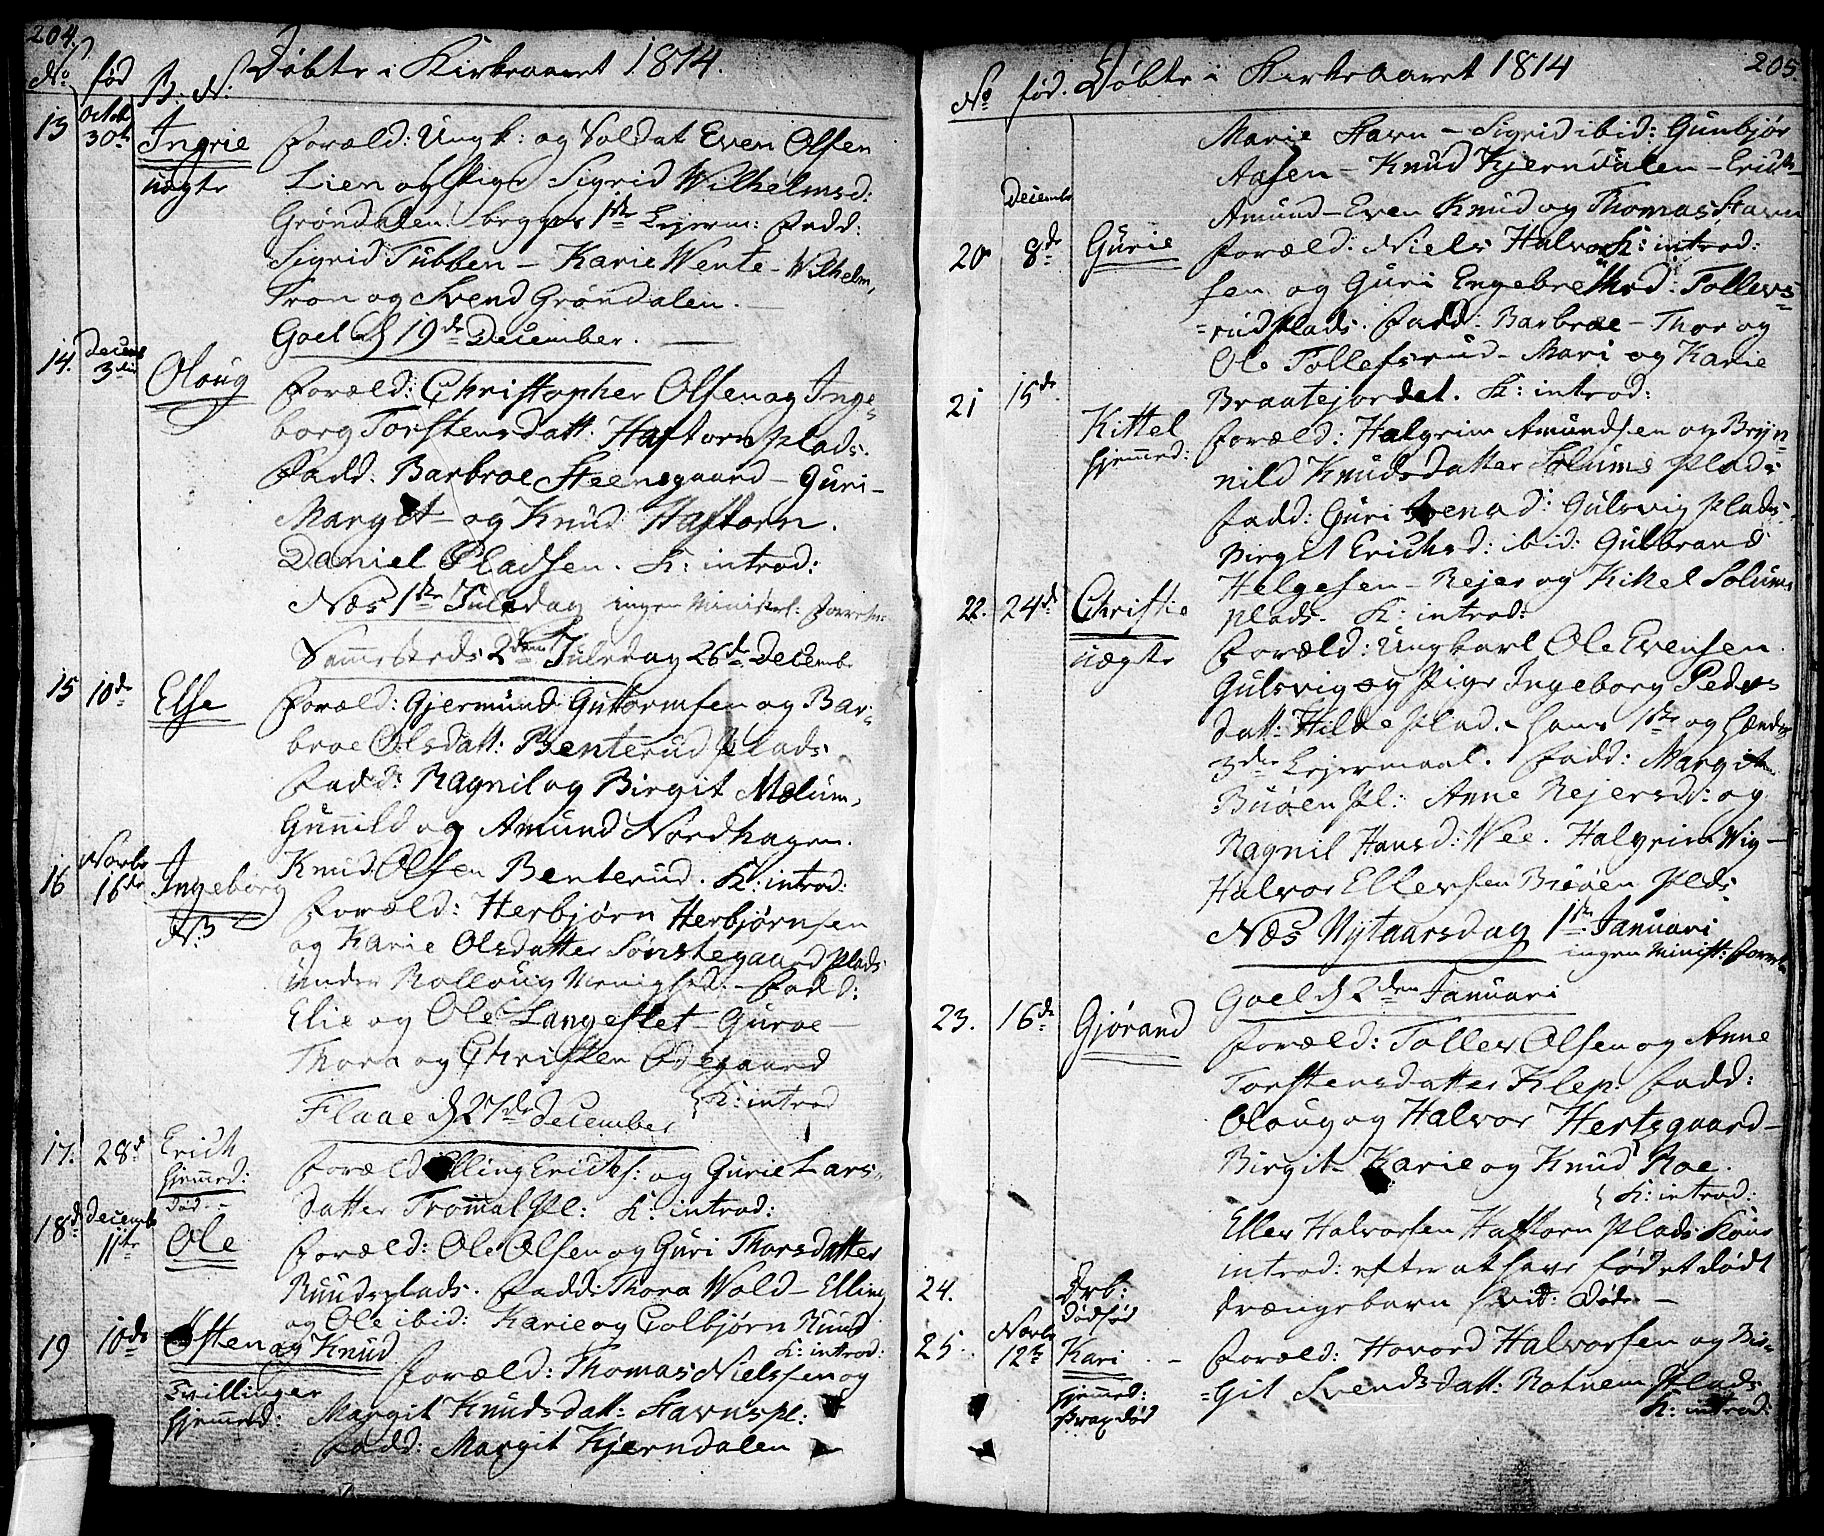 204.
No. fød B. N: Døbte i Kirkeaaret 1814.
13 Octob 30te Ingrie Foræld: Ungk: og Soldat Even Olsen
uægte Lien og Pige Sigrid Wilhelmsd:
Grøndalen begges 1ste Lejerm: Fadd:
Sigrid Tubben – Karie Wente – Wilhelm,
Tron og Svend Grøndalen. –
Goel d 19de December.
14. Decemb 3die Oloug Foræld: Christopher Olsen og Inge=
borg Torstensdatt. Haftorn Plads.
Fadd: Barbroe Steensgaard – Guri –
Margit – og Knud Haftorn.
Daniel Pladsen. K: introd:
Næs 1ste Juledag ingen Ministerl: Forretn:
Sammesteds 2den Juledag 26de Decembr
15 10de Else Foræld: Gjermund Guttormsen og Bar=
broe Olsdatt: Benterud Plads.
Fadd: Ragnil og Birgit Molum,
Gunnild og Amund Nordhagen.
Knud Olsen Benterud. K: introd:
16 Novbr 16de Ingeborg Foræld: Herbjørn Herbjørnsen
NB og Karie Olsdatter Sønstegaard Plads
under Rolloug Menighed. – Fadd:
Elie og Ole Langeslet – Guroe –
Thora og Christen Ødegaard
K: introd
Flaae d 27de December
17. 28de Erich Foræld: Elling Erichs: og Gurie Lars=
hjemmed: død – datter Trommal Pl: K: introd:
18d decemb 11te Ole Foræld: Ole Olsen og Guri Thorsdatter
Ruudsplads. Fadd: Thora Wold – Elling
og Ole ibid: Karie og Colbjørn Ruud
K: introd:
19 10de Østen og Knud Foræld: Thomas Nielssen og
Tvillinger Margit Knudsdatt: Stavnspl:
hjemmed: Fadd: Margit Kjerndalen
No fød. Døbte i Kirkeaaret 1814 205.
Marie Stavn – Sigrid ibid: Gunbjør
Aasen – Knud Kjerndalen – Erich –
Amund – Even Knud og Thomas Stavn
20 Decembr 8de Gurie Foræld: Niels Halvor= K: introd:
sen og Guri Engebretthsd: Tollevs=
=rud plads. Fadd: Barbroe – Thor og
Ole Tollefsrud – Mari og Karie
Braatejordet. K: introd:
21 15de Kittel Foræld: Halgrim Amundsen og Bryn=
hjemmed: nild Knudsdatter Solums Plads
Fadd: Guri Svensd: Gulsvig Plads.
Birgit Erichsd: ibid: Gulbrand
Helgesen – Rejer og Kittel Solums
plads. K: introd:
22. 24de Christie Foræld: Ungkarl Ole Evensen
uægte Gulsvig og Pige Ingeborg Peders
datt: Hilde Plad. – hans 1ste og hendes
3die Lejermaal. Fadd: Margit
Buøen Pl: Anne Rejersd: og
Ragnil Hansd: Wee. Halgrim Wig –
Halvor Ellevsen Buøen Plds:
Næs Nytaarsdag 1ste Januari
ingen Minist: Forretn
Goel d 2den Januari
23. 16de Gjørand Foræld: Tollev Olsen og Anne
Torstensdatter Klep: Fadd:
Oloug og Halvor Hertsgaard –
Birgit – Karie og Knud Roe.
K: introd:
24. Drb: dødfød Ellev Halvorsen Haftorn Plads Kone
introd: efter at have fødet dødt
drængebarn
25. Novbr 12te Kari Foræld: Hovord Halvorsen og Bir=
hjemmed: strax død =git Svendsdatt: Rotnem Plads
K: introd: